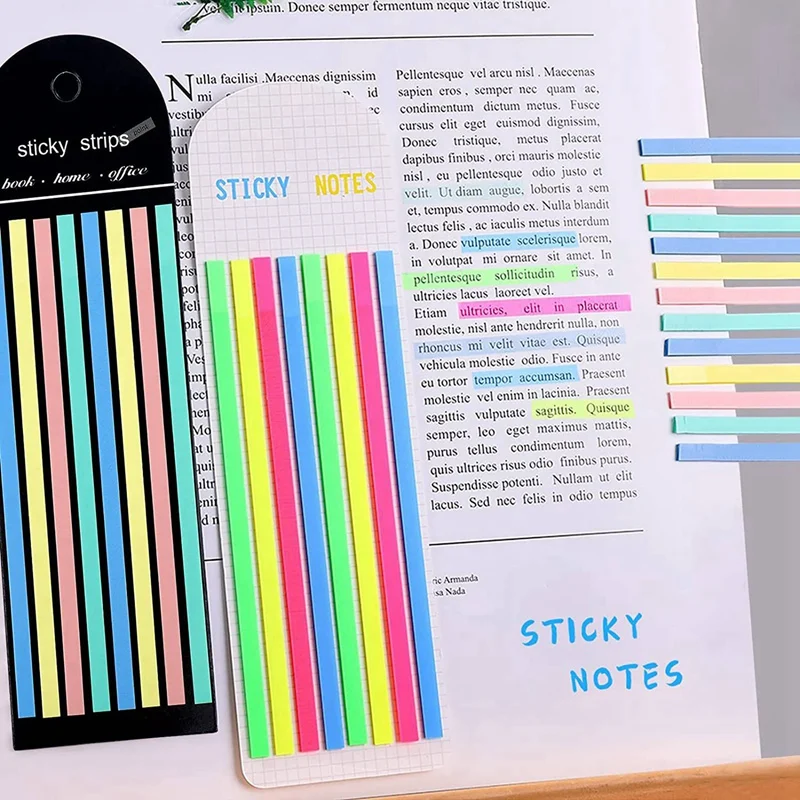 velit ipsum. Donec semper fermentum neque vitae tristique.
sticky strips
book · home · office
STICKY NOTES
Nulla facilisi .Maecenas dignissim
id
Pellentesque vel arcu nisl . Maecenas
sapien eros , semper nec quam ac,
condimentum dictum metus. Fusce
cursus elit eget euismod dignissim,
Donec tristique, metus placerat
dapibus finibus , orci mauris molestie
nisl , eu pellentesque odio justo et
velit. Ut diam augue, lobortis a sem
et, tempus commodo ex. Nulla blandit
lectus felis , ac iaculis metus interdum
a. Donec vulputate scelerisque lorem,
in volutpat mi ornare sit amet. In
pellentesque sollicitudin risus, a
ultricies lacus laoreet vel.
Etiam ultricies, elit in placerat
molestie, nisl ante hendrerit nulla, non
rhoncus mi velit vitae est. Quisque
vehicula molestie odio. Fusce in ante
eu tortor tempor accumsan. Praesent
molestie vel enim in lacinia. Praesent
sagittis vulputate sagittis. Quisque
semper, leo eget maximus mattis,
purus tellus condimentum lorem,
quis ultrices risus odio finibus purus.
Suspendisse potenti. Nullam ut elit
lacus. Sed nec felis in odio tempus
Armanda
Nada
STICKY
NOTES